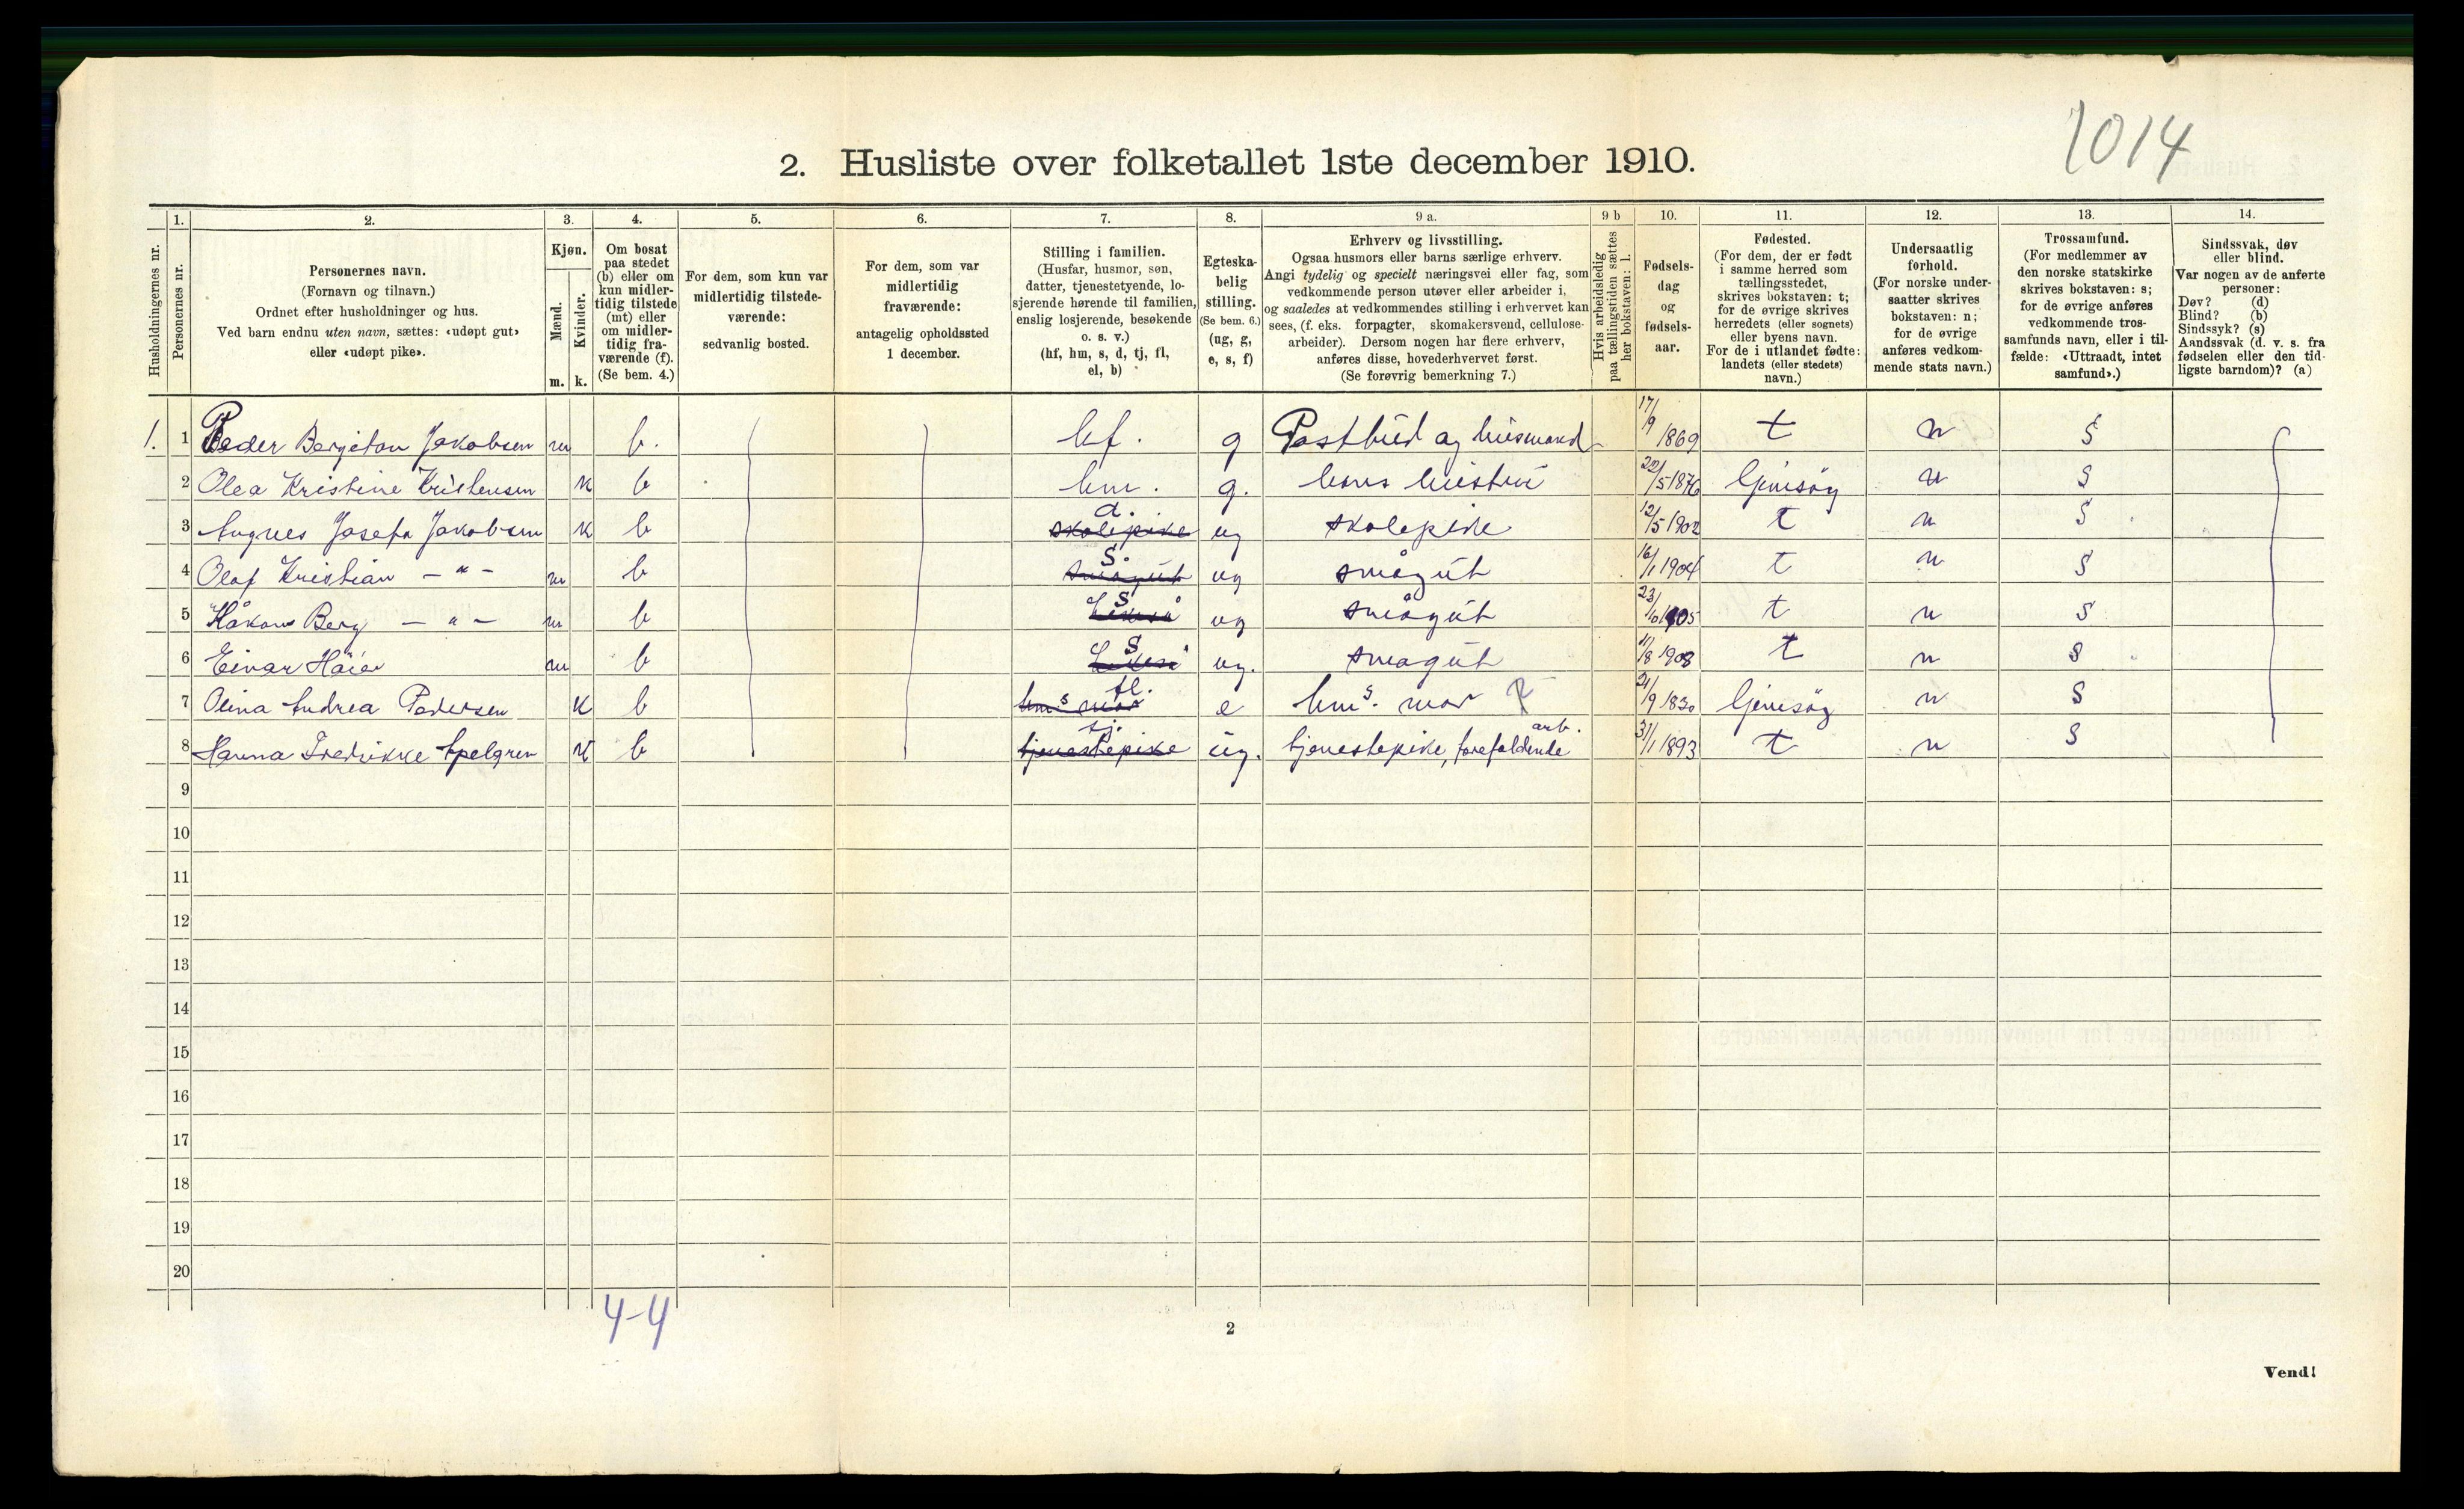 1014
2. Husliste over folketallet 1ste december 1910.
Husholdningernes nr.
1.
Personernes nr.
2.
Personernes navn.
(Fornavn og tilnavn.)
Ordnet efter husholdninger og hus.
Ved barn endnu uten navn, sættes: «udøpt gut»
eller «udøpt pike».
3.
Kjøn.
Mænd.
Kvinder.
m.
k.
4.
Om bosat
paa stedet
(b) eller om
kun midler-
tidig tilstede
(mt) eller
om midler-
tidig fra-
værende (f).
(Se bem. 4.)
5.
For dem, som kun var
midlertidig tilstede-
værende:
sedvanlig bosted.
6.
For dem, som var
midlertidig
fraværende:
antagelig opholdssted
1 december.
7.
Stilling i familien.
(Husfar, husmor, søn,
datter, tjenestetyende, lo-
sjerende hørende til familien,
enslig losjerende, besøkende
o. s. v.)
(hf, hm, s, d, tj, fl,
el, b)
8.
Egteska-
belig
stilling.
(Se bem. 6.)
(ug, g,
e, s, f)
9 a.
Erhverv og livsstilling.
Ogsaa husmors eller barns særlige erhverv.
Angi tydelig og specielt næringsvei eller fag, som
vedkommende person utøver eller arbeider i,
og saaledes at vedkommendes stilling i erhvervet kan
sees, (f. eks. forpagter, skomakersvend, cellulose-
arbeider). Dersom nogen har flere erhverv,
anføres disse, hovederhvervet først.
(Se forøvrig bemerkning 7.)
9 b
Hvis arbeidsledig
paa tællingstiden sættes
her bokstaven: l.
10.
Fødsels-
dag
og
fødsels-
aar.
11.
Fødested.
(For dem, der er født
i samme herred som
tællingsstedet,
skrives bokstaven: t;
for de øvrige skrives
herredets (eller sognets)
eller byens navn.
For de i utlandet fødte:
landets (eller stedets)
navn.)
12.
Undersaatlig
forhold.
(For norske under-
saatter skrives
bokstaven: n;
for de øvrige
anføres vedkom-
mende stats navn.)
13.
Trossamfund.
(For medlemmer av
den norske statskirke
skrives bokstaven: s;
for de øvrige anføres
vedkommende tros-
samfunds navn, eller i til-
fælde: «Uttraadt, intet
samfund».)
14.
Sindssvak, døv
eller blind.
Var nogen av de anførte
personer:
Døv? (d)
Blind? (b)
Sindssyk? (s)
Aandssvak (d. v. s. fra
fødselen eller den tid-
ligste barndom)? (a)
1. 1 Peder Bergiton Jakobsen m b. hf. g Postbud og husmand 17/9 1869 t n S
2 Olea Kristine Kristensen k b hm. g. hans hustru 22/5 1876 Gimsöy n S
3 Augnes Josefa Jakobsen k b skolepike d. ug skolepike 12/5 1902 t n S
4 Olaf Kristian - " - m b smågut S. ug smågut 16/1 1904 t n S
5 Håkon Berg - " - m b S ug smågut 23/10 1905 t n S
6 Einar Häier m b S ug. smagut 11/8 1908 t n S
7 Olina Andrea Pedersen k b hms mor fl. e hms. mor 21/9 1830 Gimsöy n S
8 Hanna Fredrikke Apelgren k b tjenestepike tj. ug. tjenestepike, forefaldende arb. 31/1 1893 t n S
9
10
11
12
13
14
15
16
17
18
19
20
4-4
2
Vend!